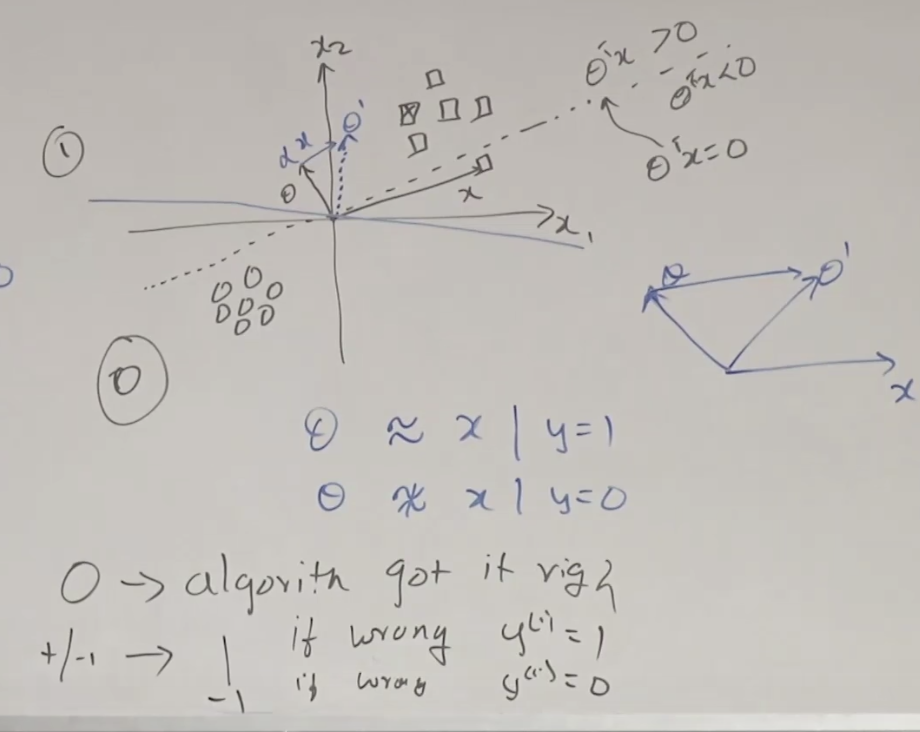 x₂
θᵀx > 0
θᵀx < 0
θᵀx = 0
①
αx
θ'
θ
x
x₁
⓪
θ
θ'
x
θ ≈ x | y=1
θ ≉ x | y=0
0 → algorith got it righ
+/-1 → 1 if wrong y⁽ⁱ⁾ = 1
-1 if wrong y⁽ⁱ⁾ = 0